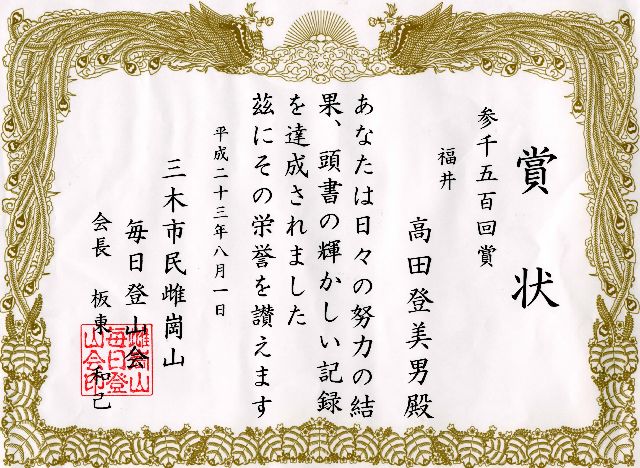 賞状
参千五百回賞
福井
高田登美男殿
あなたは日々の努力の結
果、頭書の輝かしい記録
を達成されました
茲にその栄誉を讃えます
平成二十三年八月一日
三木市民雌崗山
毎日登山会
会長 板東和己
雌岡山
毎日登
山会印